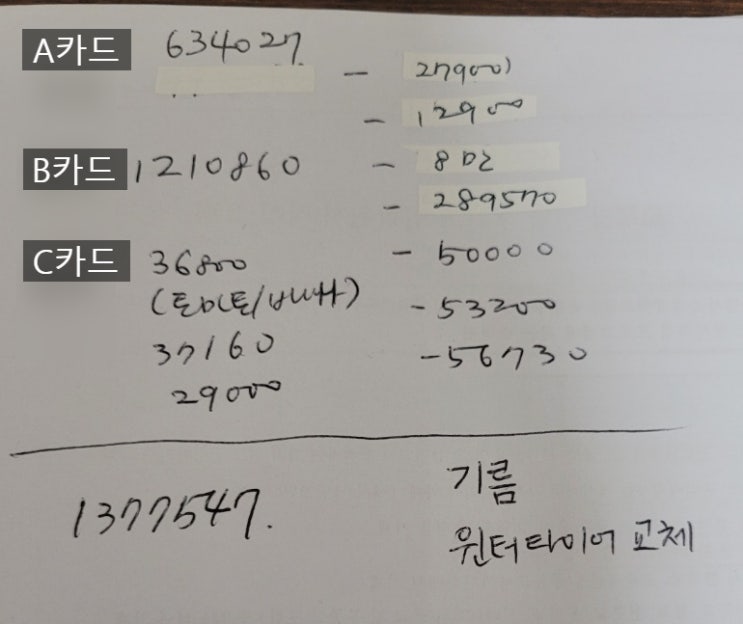 A카드 634027. - 27900
- 12900
B카드 1210860 - 8만
- 289570
C카드 36800 - 50000
(토마토/바나나) - 53200
37160 - 56730
29000
1377547. 기름
윈터타이어 교체